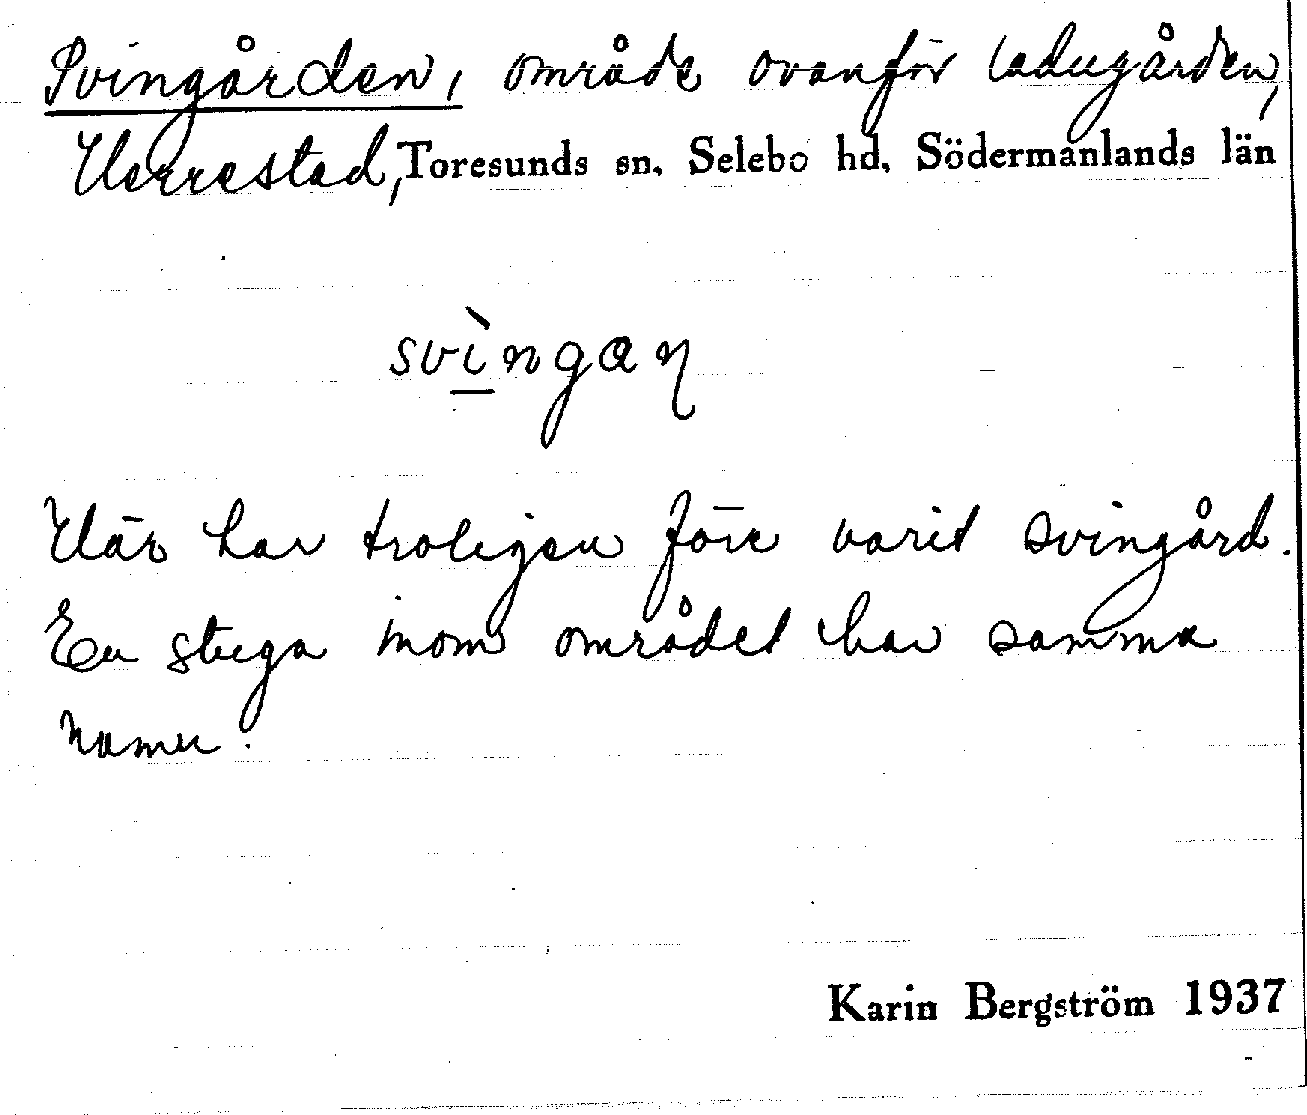 Svingården, område ovanför ladugården,
Herrestad, Toresunds sn, Selebo hd, Södermanlands län
svìngaṇ
Här har troligen förr varit svingård.
En stuga inom området har samma
namn.
Karin Bergström 1937